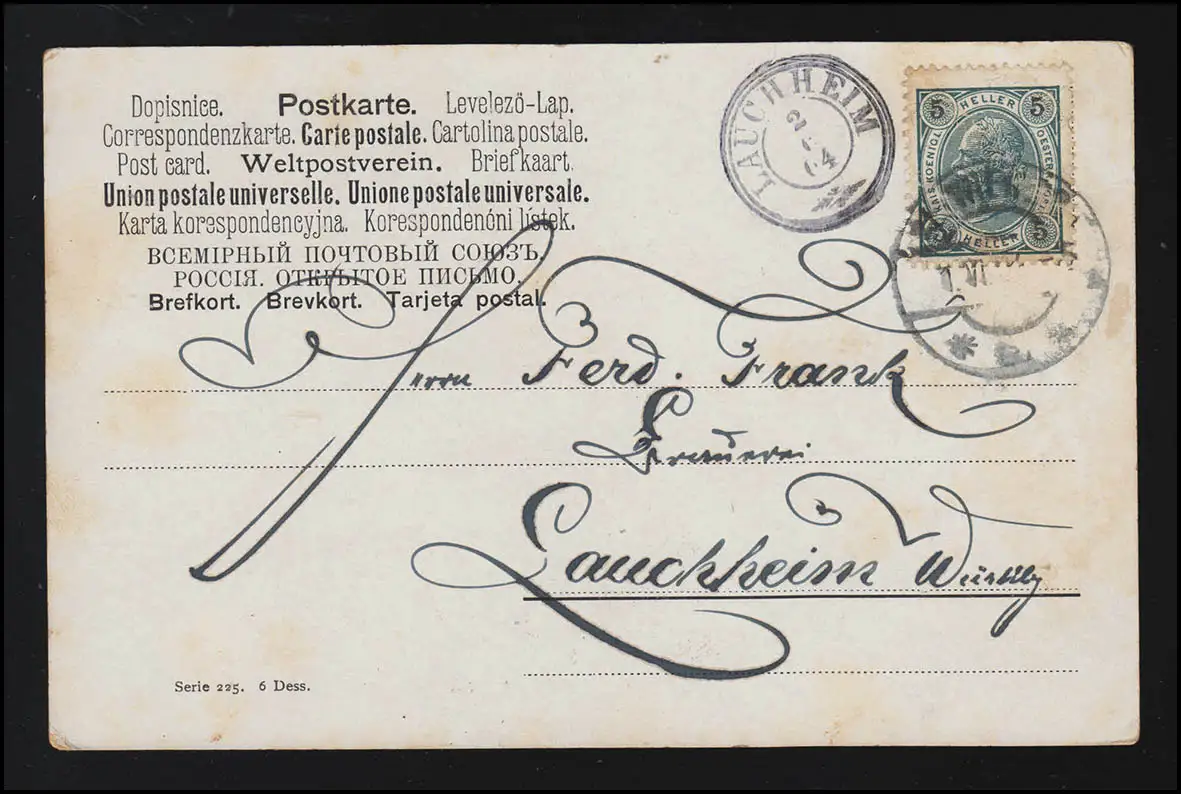 Dopisnice. Postkarte. Levelezö-Lap.
Correspondenzkarte. Carte postale. Cartolina postale.
Post card. Weltpostverein. Briefkaart.
Union postale universelle. Unione postale universale.
Karta korespondencyjna. Korespondenčni lístek.
ВСЕМІРНЫЙ ПОЧТОВЫЙ СОЮЗЪ.
РОССІЯ. ОТКРЫТОЕ ПИСЬМО.
Brefkort. Brevkort. Tarjeta postal.
LAUCHHEIM
04
5 HELLER 5
5 HELLER 5
1 VI
Herrn Ferd. Frank
Brauerei
Lauchheim Württbg
Serie 225. 6 Dess.